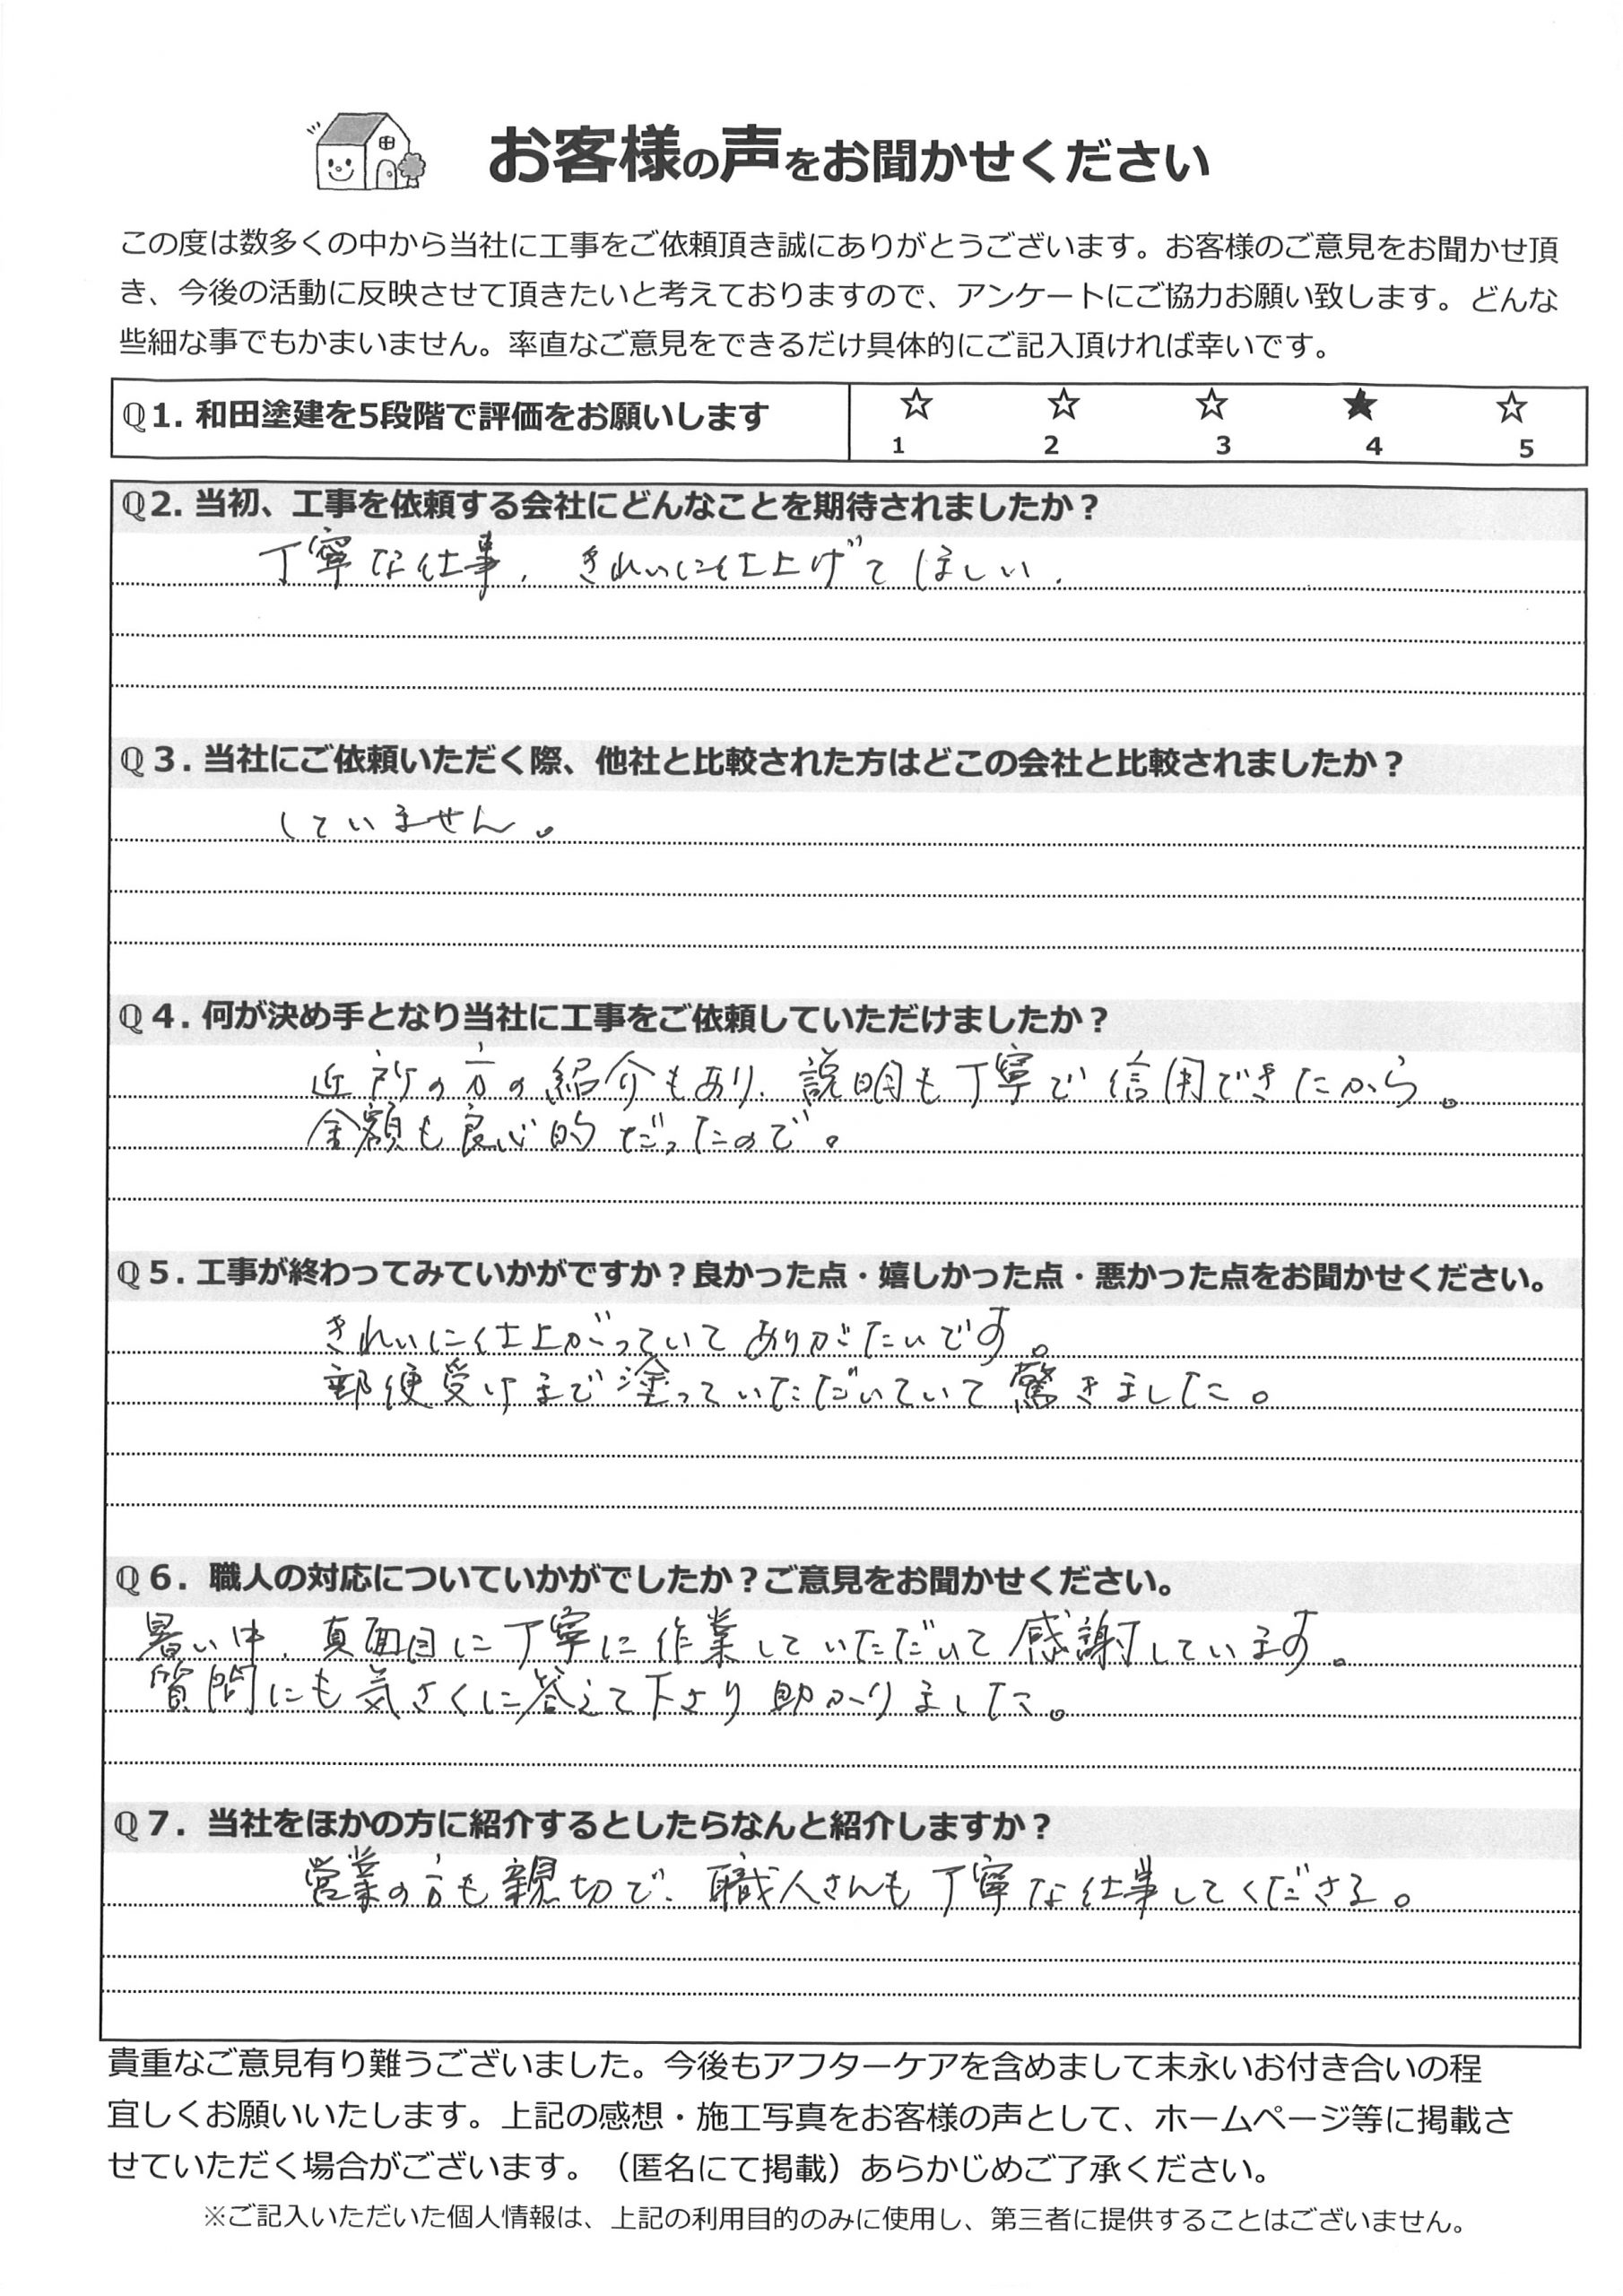 お客様の声をお聞かせください
この度は数多くの中から当社に工事をご依頼頂き誠にありがとうございます。お客様のご意見をお聞かせ頂
き、今後の活動に反映させて頂きたいと考えておりますので、アンケートにご協力お願い致します。どんな
些細な事でもかまいません。率直なご意見をできるだけ具体的にご記入頂ければ幸いです。
Q1. 和田塗建を5段階で評価をお願いします
☆ ☆ ☆ ★ ☆
1 2 3 4 5
Q2. 当初、工事を依頼する会社にどんなことを期待されましたか？
丁寧な仕事、きれいに仕上げてほしい.
Q３. 当社にご依頼いただく際、他社と比較された方はどこの会社と比較されましたか？
していません。
Q４. 何が決め手となり当社に工事をご依頼していただけましたか？
近所の方の紹介もあり、説明も丁寧で信用できたから。
金額も良心的だったので。
Q５. 工事が終わってみていかがですか？良かった点・嬉しかった点・悪かった点をお聞かせください。
きれいに仕上がっていてありがたいです。
郵便受けまで塗っていただいていて驚きました。
Q６. 職人の対応についていかがでしたか？ご意見をお聞かせください。
暑い中、真面目に丁寧に作業していただいて感謝しています。
質問にも気さくに答えて下さり助かりました。
Q７. 当社をほかの方に紹介するとしたらなんと紹介しますか？
営業の方も親切で、職人さんも丁寧な仕事してくださる。
貴重なご意見有り難うございました。今後もアフターケアを含めまして末永いお付き合いの程
宜しくお願いいたします。上記の感想・施工写真をお客様の声として、ホームページ等に掲載さ
せていただく場合がございます。（匿名にて掲載）あらかじめご了承ください。
※ご記入いただいた個人情報は、上記の利用目的のみに使用し、第三者に提供することはございません。